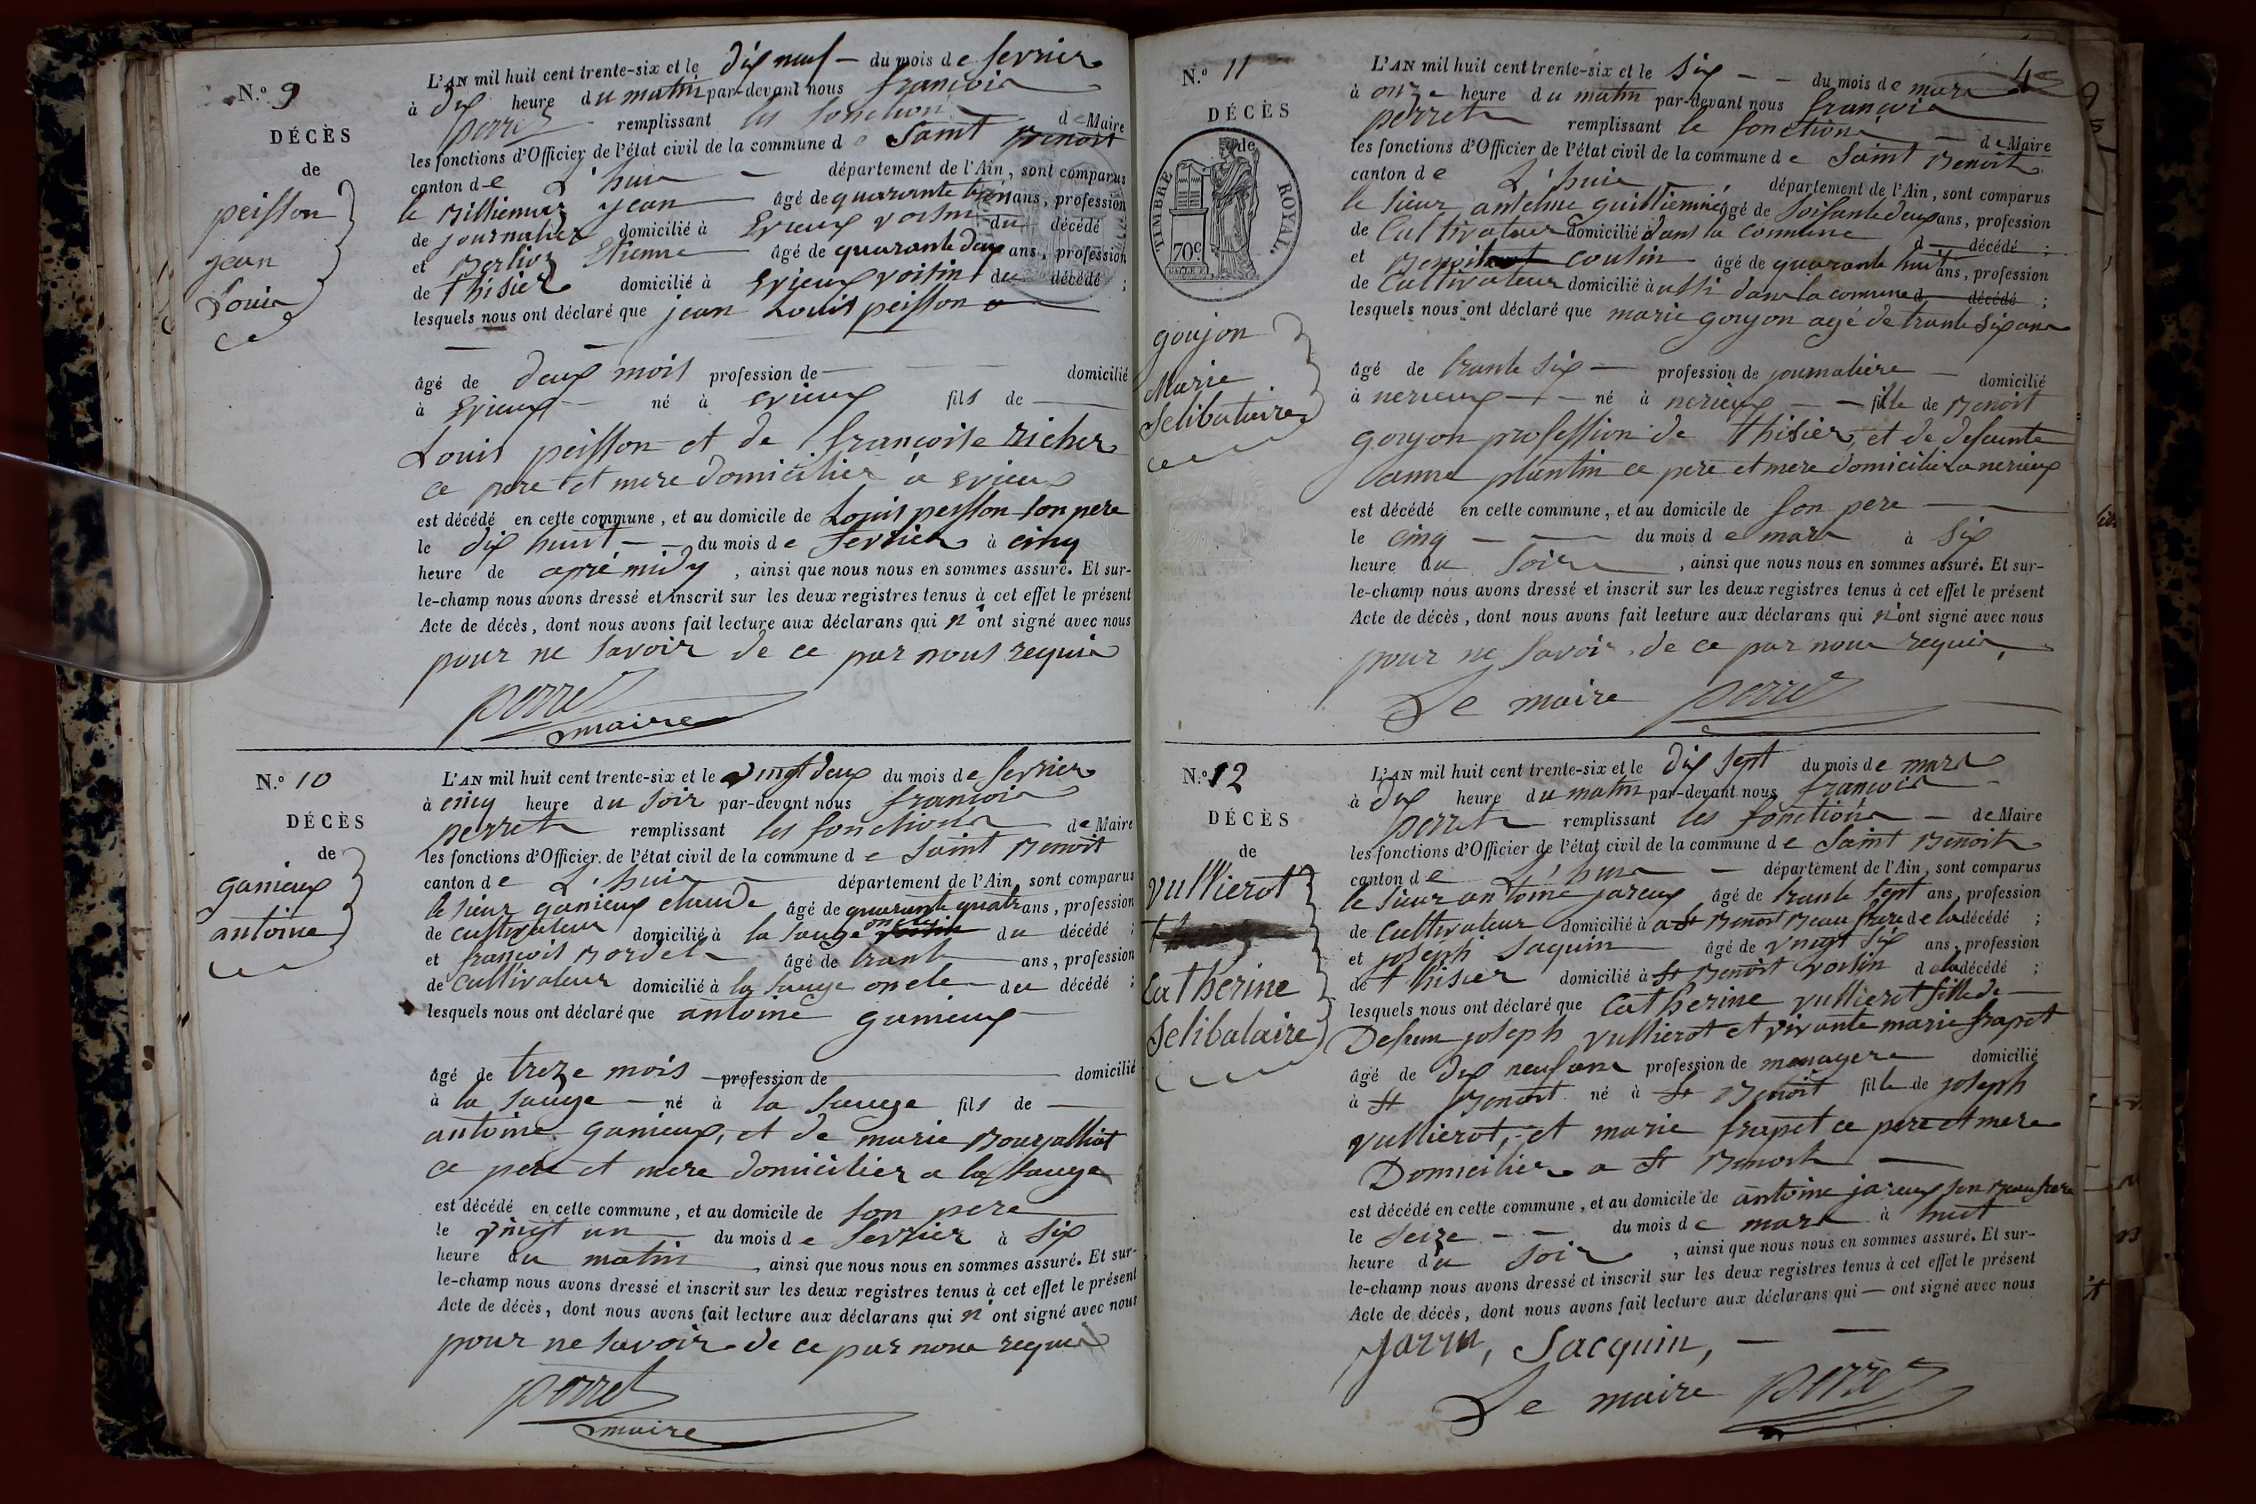 N.° 9
DÉCÈS
de
peisson
jean
Louis
L'AN mil huit cent trente-six et le dix neuf — du mois de fevrier
à dix heure du matin par-devant nous francois
perret remplissant les fonctions de Maire
les fonctions d'Officier de l'état civil de la commune de Saint Benoit
canton de L'huis — département de l'Ain, sont comparus
le jean âgé de quarante trois ans, profession
de journalier domicilié à Evieux voisin du décédé
et Berlioz Etienne âgé de quarante deux ans, profession
de thisier domicilié à Evieux voisin du décédé ;
lesquels nous ont déclaré que jean Louis peisson
âgé de deux mois profession de — domicilié
à Evieux né à Evieux fils de —
Louis peisson et de francoise richer
ce pere et mere domicilier à Evieux
est décédé en cette commune, et au domicile de Louis peisson son pere
le dix huit — du mois de fevrier à cinq
heure de aprè midy, ainsi que nous nous en sommes assuré. Et sur-
le-champ nous avons dressé et inscrit sur les deux registres tenus à cet effet le présent
Acte de décès, dont nous avons fait lecture aux déclarans qui n'ont signé avec nous
pour ne savoir de ce par nous requis
perret
maire
N.° 10
DÉCÈS
de
ganieux
antoine
L'AN mil huit cent trente-six et le vingt deux du mois de fevrier
à cinq heure du soir par-devant nous francois
perret remplissant les fonctions de Maire
les fonctions d'Officier de l'état civil de la commune de Saint Benoit
canton de L'huis — département de l'Ain, sont comparus
le sieur ganieux claude âgé de quarante quatre ans, profession
de cultivateur domicilié à la sauge oncle du décédé ;
et francois Bordet âgé de trante ans, profession
de cultivateur domicilié à la sauge oncle du décédé ;
lesquels nous ont déclaré que antoine ganieux
âgé de treze mois profession de — domicilié
à la sauge — né à la sauge fils de —
antoine ganieux, et de marie Bourgalliat
ce pere et mere domicilier a la sauge
est décédé en cette commune, et au domicile de son pere
le vingt un du mois de fevrier à six
heure du matin, ainsi que nous nous en sommes assuré. Et sur-
le-champ nous avons dressé et inscrit sur les deux registres tenus à cet effet le présent
Acte de décès, dont nous avons fait lecture aux déclarans qui n'ont signé avec nous
pour ne savoir de ce par nous requis
perret
maire
4
N.° 11
DÉCÈS
de
TIMBRE ROYAL
70c
goujon
Marie
Selibataire
L'AN mil huit cent trente-six et le six — — du mois de mars
à onze heure du matin par-devant nous francois
perret remplissant le fonctions — de Maire
les fonctions d'Officier de l'état civil de la commune de Saint Benoit
canton de L'huis département de l'Ain, sont comparus
le sieur antelme guilliermin âgé de soisante deux ans, profession
de Cultivateur domicilié dans la commune d décédé ;
et Benoit cousin âgé de quarante huit ans, profession
de Cultivateur domicilié aussi dans la comune d décédé ;
lesquels nous ont déclaré que marie goujon agé de trante six ans
âgé de trante six — profession de journaliere — domicilié
à nerieux — né à nerieux — fille de Benoit
goujon profession de thisier, et de defunte
anne plantin ce pere et mere domicilier a nerieux
est décédé en cette commune, et au domicile de son pere —
le cinq — — du mois de mars à six
heure du soir, ainsi que nous nous en sommes assuré. Et sur-
le-champ nous avons dressé et inscrit sur les deux registres tenus à cet effet le présent
Acte de décès, dont nous avons fait lecture aux déclarans qui n'ont signé avec nous
pour ne savoir de ce par nous requis
Le maire perret
N.° 12
DÉCÈS
de
vullierot
Catherine
Selibataire
L'AN mil huit cent trente-six et le dix sept du mois de mars
à dix heure du matin par-devant nous francois
perret remplissant les fonctions — de Maire
les fonctions d'Officier de l'état civil de la commune de Saint Benoit
canton de L'huis — département de l'Ain, sont comparus
le sieur antoine jareux âgé de trante sept ans, profession
de Cultivateur domicilié à a St Benoit Beau frere de la décédé ;
et joseph Saquin âgé de vingt six ans, profession
de thisier domicilié à St Benoit voisin de la décédé ;
lesquels nous ont déclaré que Catherine vullierot fille de
Defunt joseph vullierot et vivante marie frapet
âgé de dix neuf ans profession de menagere domicilié
à St Benoit né à St Benoit fille de joseph
vullierot, et marie frapet ce pere et mere
Domicilier a St Benoit —
est décédé en cette commune, et au domicile de antoine jareux son Beau frere
le seize — — du mois de mars à huit
heure du soir, ainsi que nous nous en sommes assuré. Et sur-
le-champ nous avons dressé et inscrit sur les deux registres tenus à cet effet le présent
Acte de décès, dont nous avons fait lecture aux déclarans qui — ont signé avec nous
Sacquin, —
Le maire perret